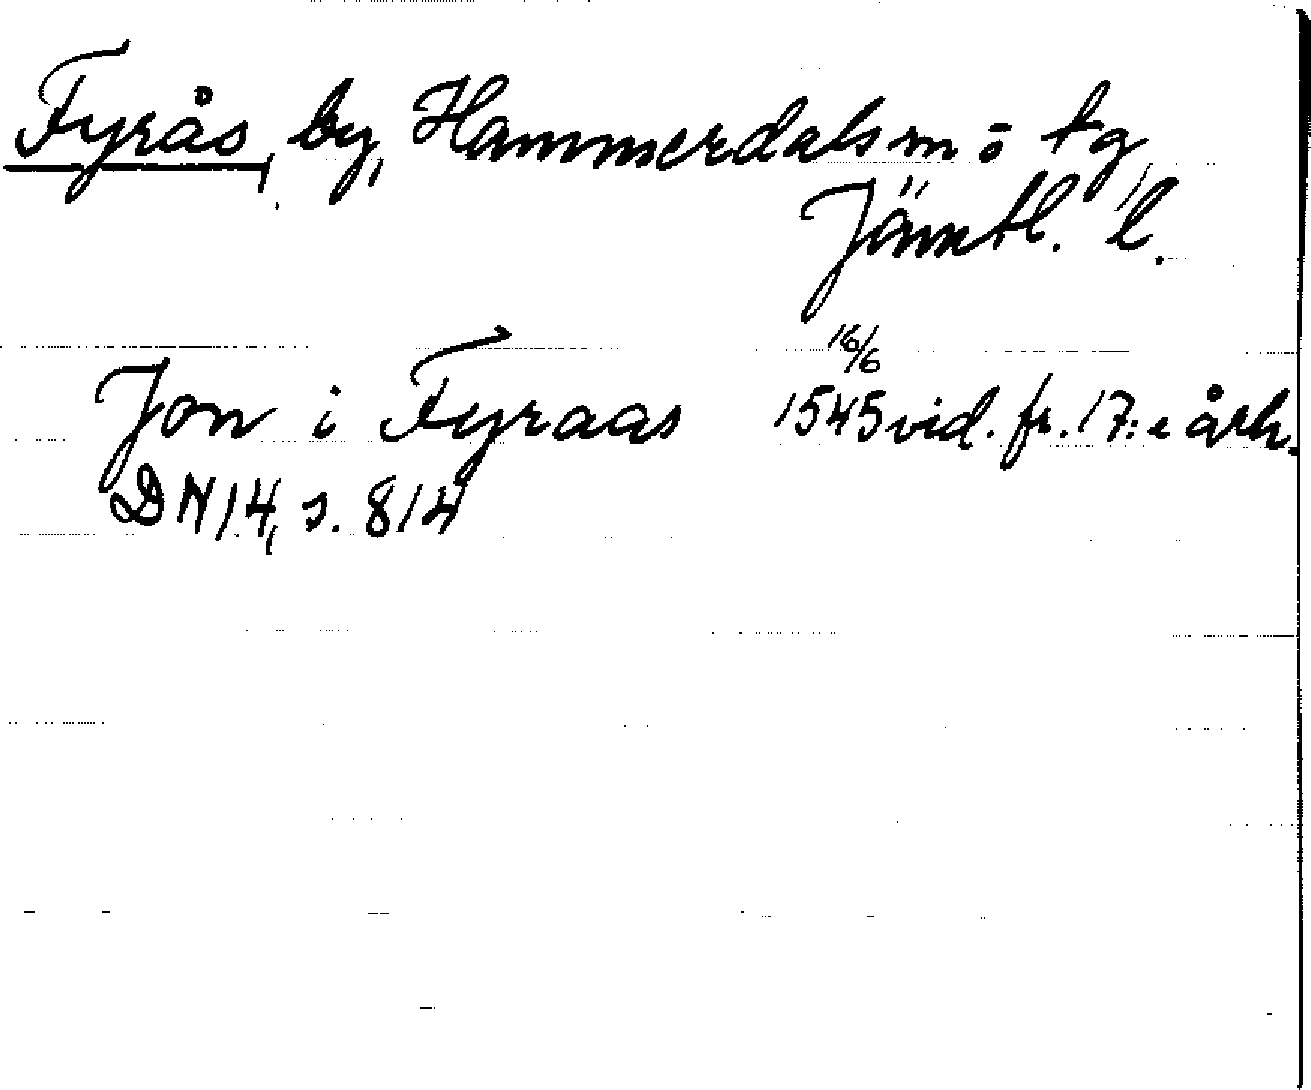 Fyrås, by, Hammerdals sn o tg,
Jämtl. l.
Jon i Fyraas 16/6 1545 vid. fr. 17:e årh.
DN 14, s. 814